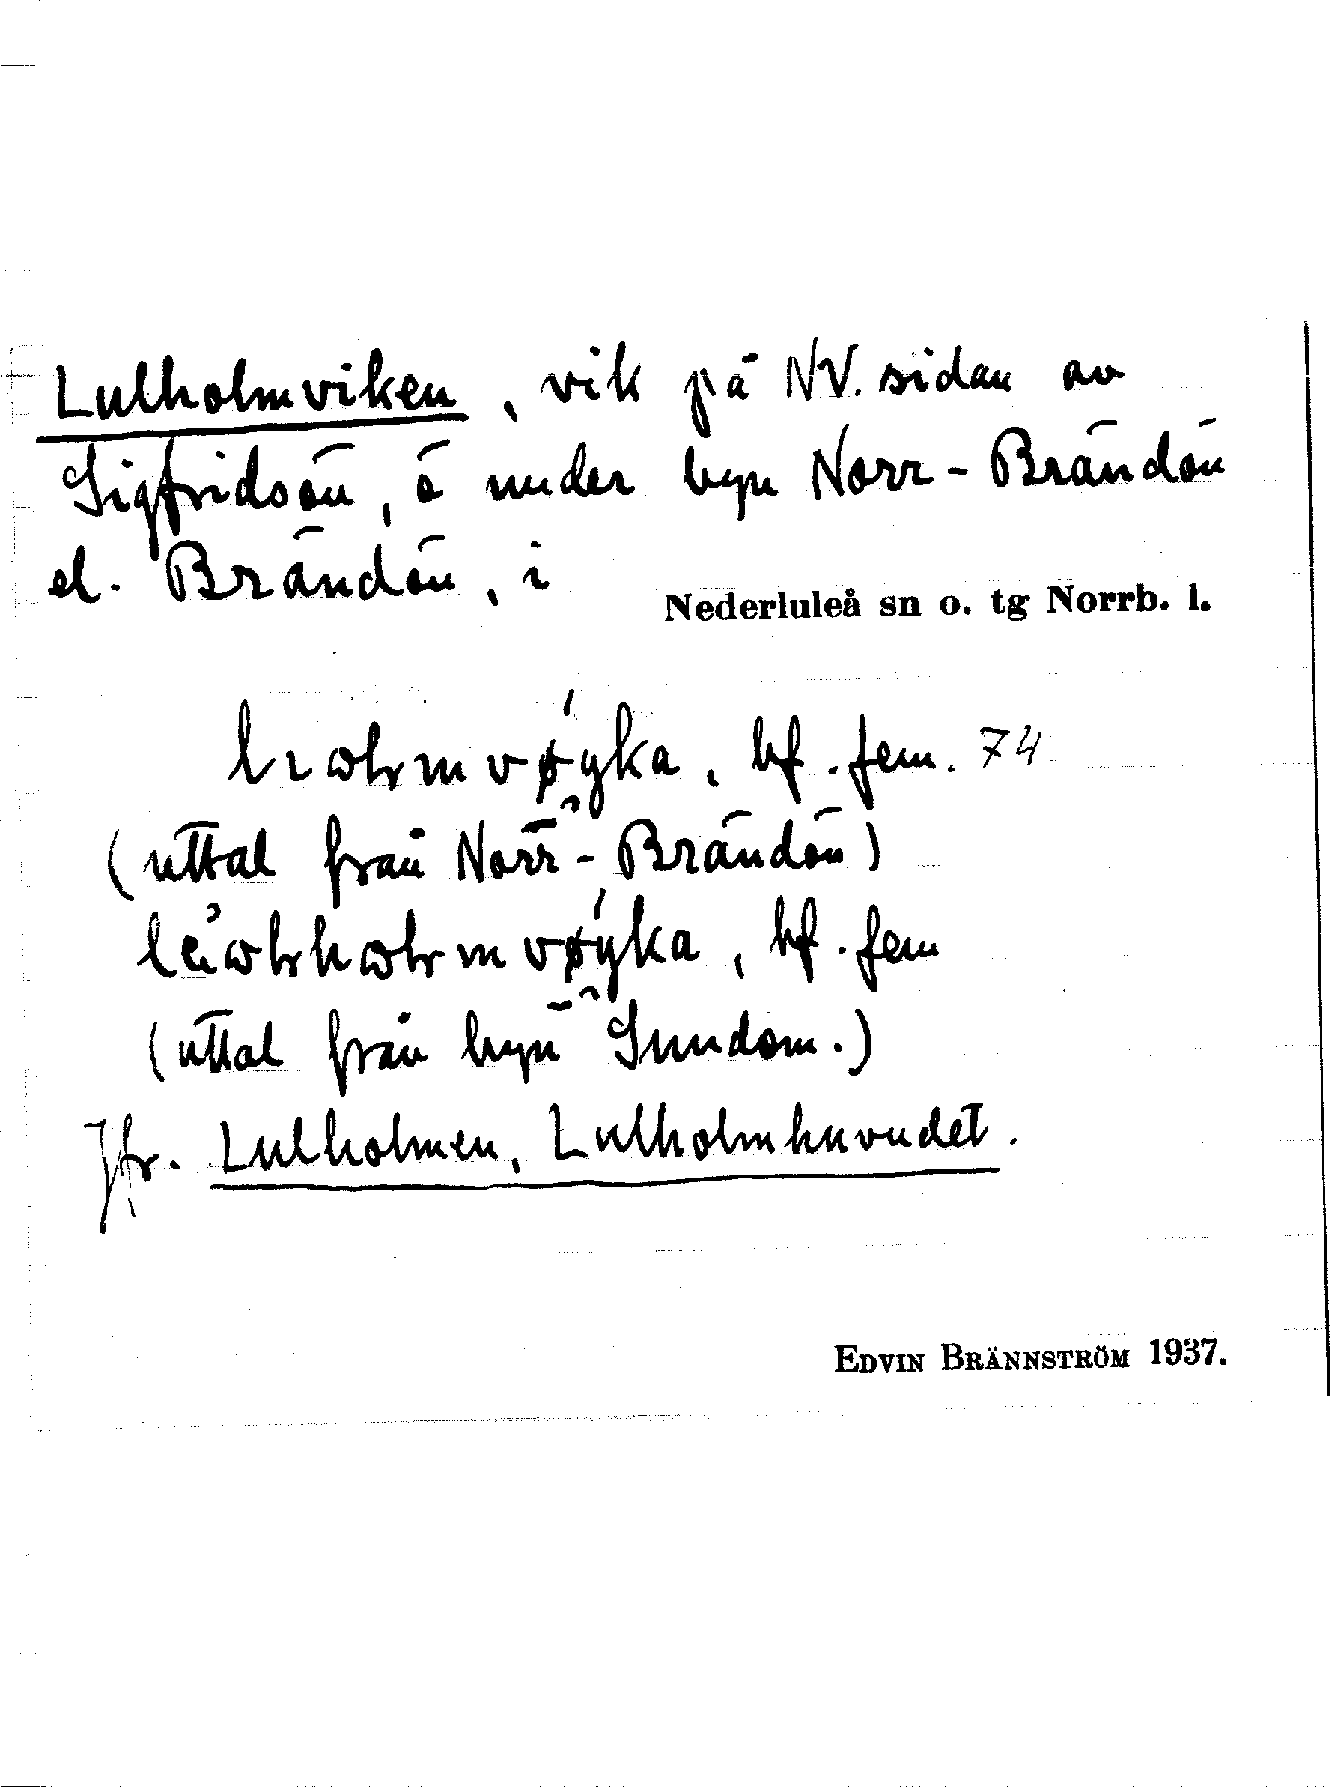 Lulholmviken, vik på NV. sidan av
Sigfridsön, ö under byn Norr-Brändön
el. Brändön, i Nederluleå sn o. tg Norrb. l.
bf. fem. 74
(uttal från Norr-Brändön)
bf. fem
(uttal från byn Sundom.)
Jfr. Lulholmen, Lulholmhuvudet.
EDVIN BRÄNNSTRÖM 1937.